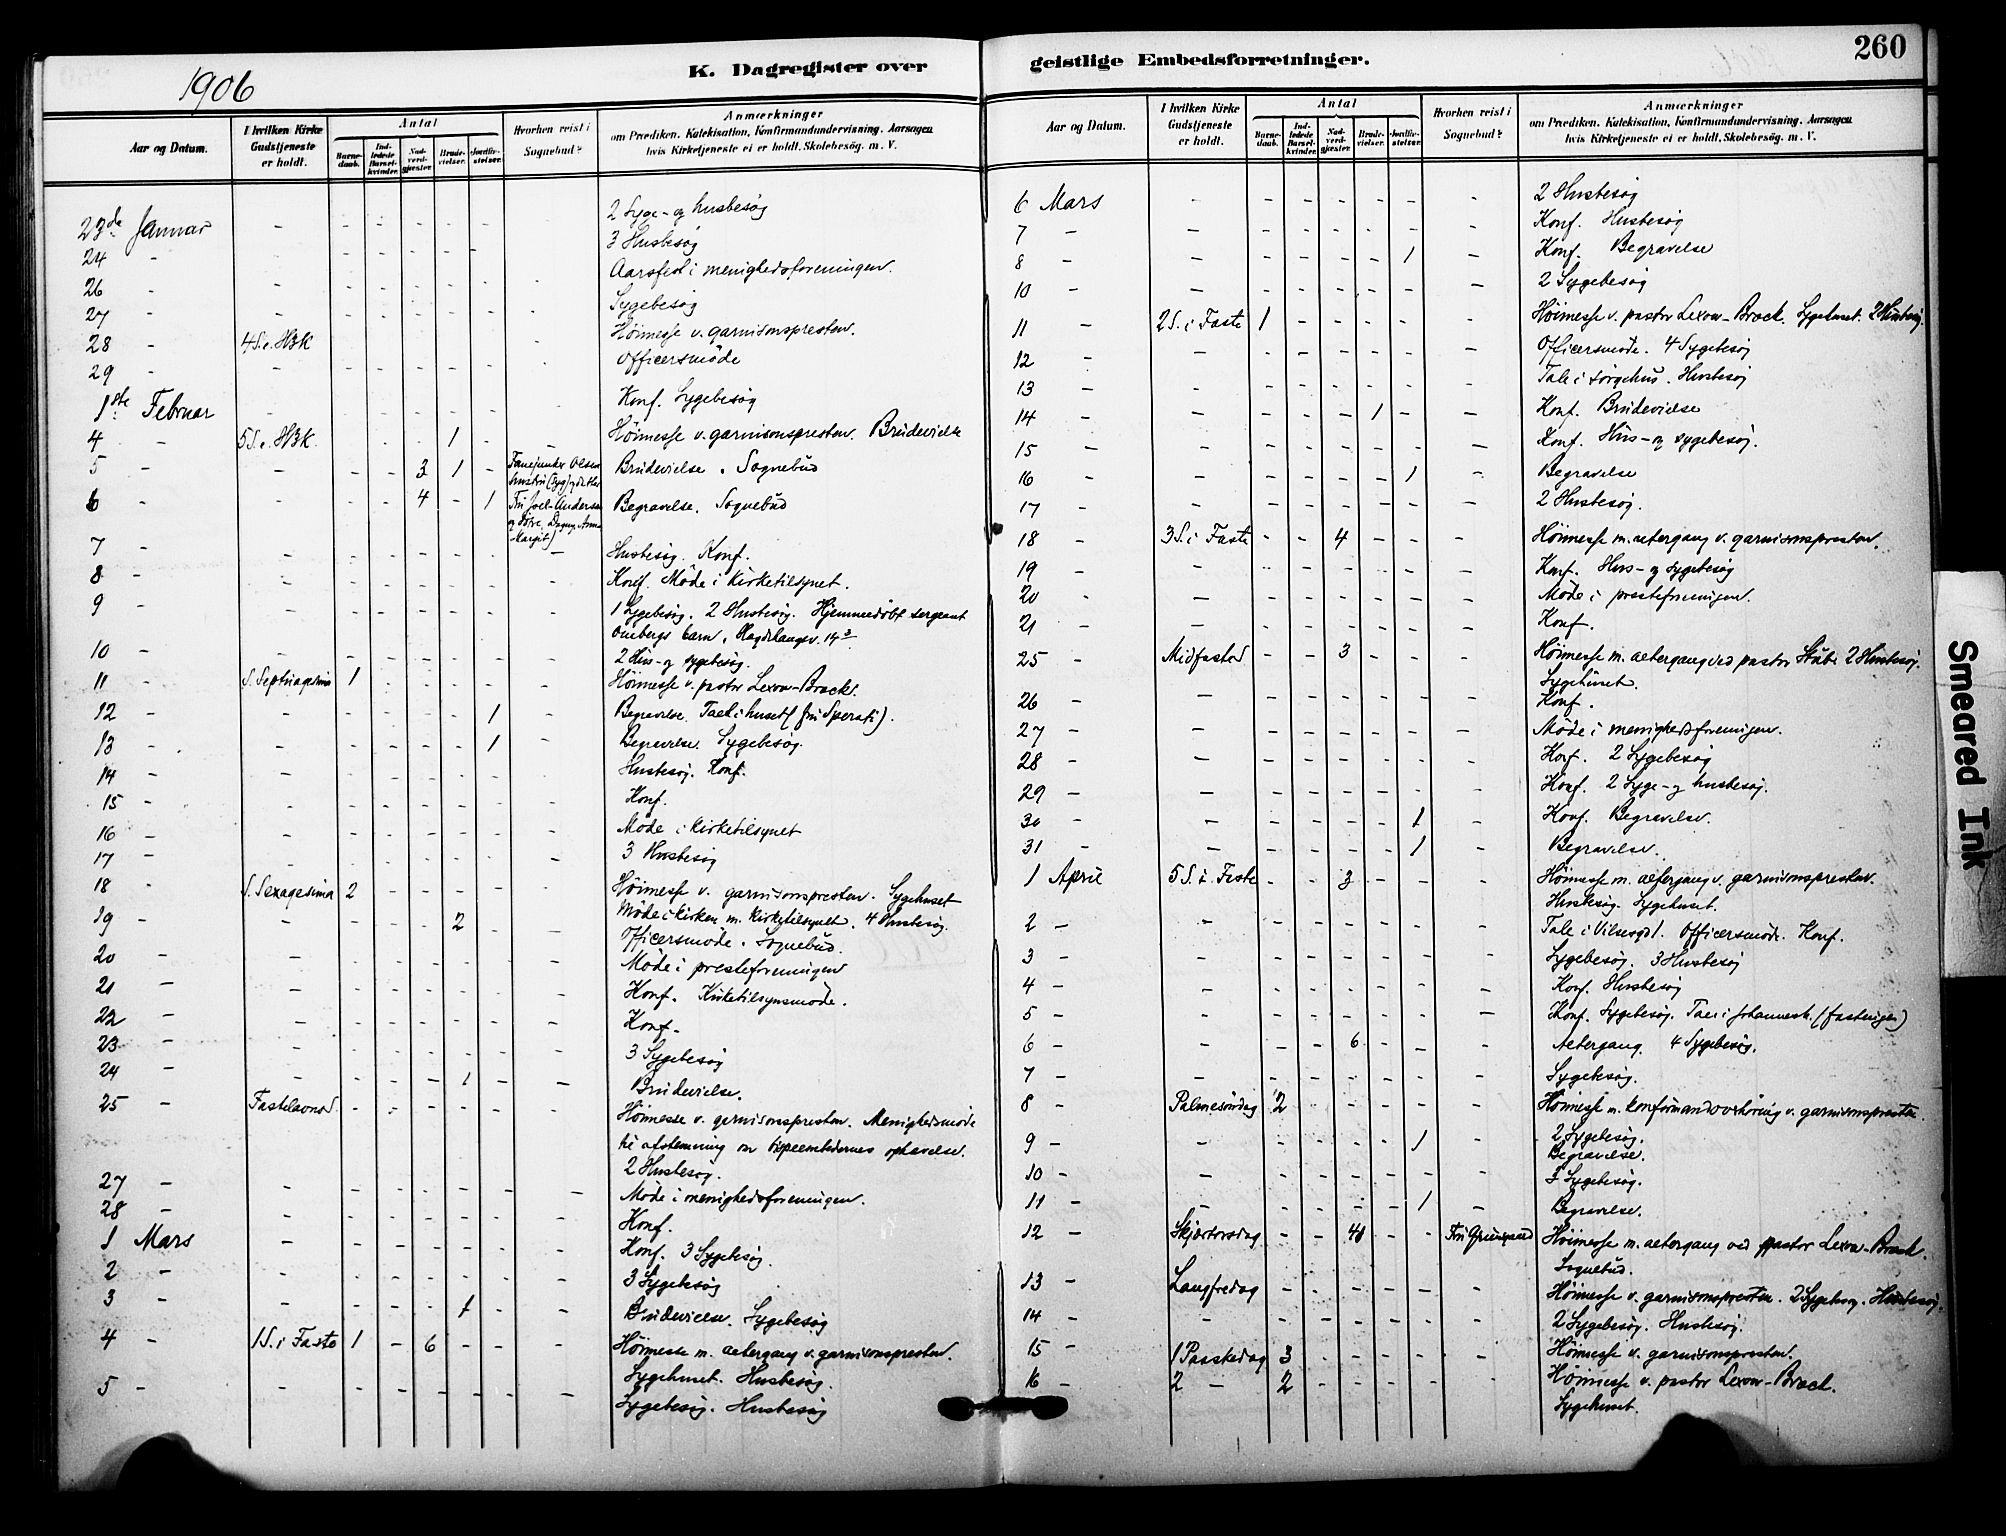 1906
K. Dagregister over
Aar og Datum.
I hvilken Kirke Gudstjeneste er holdt.
Antal
Barne-daab.
Ind-ledede Barsel-kvinder.
Nad-verd-gjæster.
Brude-vielser.
Jordfæs-telser.
Hvorhen reist i Sognebud?
Anmærkninger
om Prædiken. Katekisation, Konfirmandundervisning. Aarsagen
hvis Kirketjeneste ei er holdt. Skolebesøg. m. V.
23de Januar - - - - - - - 2 Syge- og husbesøg
24 - - - - - - - - 3 Husbesøg
26 - - - - - - - - Aarsfest i menighedsforeningen.
27 - - - - - - - - Sygebesøg
28 - 4 S. e. H3K - - - - - - Høimesse v. garnisonspresten.
29 - - - - - - - - Officersmøde
1ste Februar - - - - - - - Konf. Sygebesøg
4 - 5 S. e. H3K - - - 1 - - Høimesse v. garnisonspresten. Brudevielse
5 - - - - 3 1 - Fanejunker Olsen Brudevielse. Sognebud
6 - - - - 4 - 1 Begravelse. Sognebud
7 - - - - - - - - Husbesøg. Konf.
8 - - - - - - - - Konf. Møde i Kirketilsynet.
9 - - - - - - - - 1 Sygebesøg. 2 Husbesøg. Hjemmedøbt sergeant
10 - - - - - - - - 2 Hus- og sygebesøg.
11 - S. Septuagesima 1 - - - - - Høimesse v. pastor Lexow-Brock.
12 - - - - - - 1 - Begravelse. Tale i huset (fru Sperati).
13 - - - - - - 1 - Begravelse. Sygebesøg.
14 - - - - - - - - Husbesøg. Konf.
15 - - - - - - - - Konf.
16 - - - - - - - - Møde i Kirketilsynet
17 - - - - - - - - 3 Husbesøg
18 - S. Sexagesima 2 - - - - - Høimesse v. garnisonspresten. Sygehuset
Møde i Kirken m. Kirketilsynet. 4 Husbesøg.
19 - - - - - 2 - - Officersmøde. Sognebud.
20 - - - - - - - - Møde i presteforeningen
21 - - - - - - - - Konf. Kirketilsynsmøde.
22 - - - - - - - - Konf.
23 - - - - - - - - 3 Sygebesøg
24 - - - - - 1 - - Brudevielse.
25 - Fastelavnsd. - - - - - - Høimesse v. garnisonspresten. Menighedsmøde
til afstemning om bispeembedernes ophævelse.
2 Husbesøg.
27 - - - - - - - - Møde i menighedsforeningen.
28 - - - - - - - - Konf.
1 Mars - - - - - - - Konf. 3 Sygebesøg.
2 - - - - - - - - 3 Sygebesøg
3 - - - - - 1 - - Brudevielse. Sygebesøg
4 - 1 S. i Faste 1 - 6 - - - Høimesse m. altergang v. garnisonspresten.
Sygehuset. Husbesøg.
5 - - - - - - - - Sygebesøg. Husbesøg
geistlige Embedsforretninger.
260
Aar og Datum.
I hvilken Kirke Gudstjeneste er holdt.
Antal
Barne-daab.
Ind-ledede Barsel-kvinder.
Nad-verd-gjæster.
Brude-vielser.
Jordfæs-telser.
Hvorhen reist i Sognebud?
Anmærkninger
om Prædiken. Katekisation, Konfirmandundervisning. Aarsagen
hvis Kirketjeneste ei er holdt. Skolebesøg. m. V.
6 Mars - - - - - - - 2 Husbesøg
7 - - - - - - - - Konf. Husbesøg
8 - - - - - - 1 - Konf. Begravelse
10 - - - - - - - - 2 Sygebesøg
11 - 2 S. i Faste 1 - - - - - Høimesse v. pastor Lexow-Brock. Sygehuset. 2 Husbesøg.
12 - - - - - - - - Officersmøde. 4 Sygebesøg
13 - - - - - - - - Tale i sørgehus. Husbesøg
14 - - - - - 1 - - Konf. Brudevielse
15 - - - - - - - - Konf. Hus- og sygebesøg.
16 - - - - - - 1 - Begravelse
17 - - - - - - - - 2 Husbesøg.
18 - 3 S. i Faste - - 4 - - - Høimesse m. altergang v. garnisonspresten.
19 - - - - - - - - Konf. Hus- og sygebesøg
20 - - - - - - - - Møde i presteforeningen.
21 - - - - - - - - Konf.
25 - Midfasted - - 3 - - - Høimesse m. altergang ved pastor Stub. 2 Husbesøg.
Sygehuset.
26 - - - - - - - - Konf.
27 - - - - - - - - Møde i menighedsforeningen.
28 - - - - - - - - Konf. 2 Sygebesøg
29 - - - - - - - - Konf. 2 Syge- og husbesøg.
30 - - - - - - 1 - Konf. Begravelse.
31 - - - - - - 1 - Begravelse.
1 April 5 S. i Faste - - 3 - - - Høimesse m. altergang v. garnisonspresten.
Husbesøg. Sygehuset.
2 - - - - - - - - Officersmøde. Konf.
3 - - - - - - - - Sygebesøg. 3 Husbesøg
4 - - - - - - - - Konf. Husbesøg
5 - - - - - - - - Konf. Sygebesøg. Tale i Johannesk.
6 - - - - 6 - - - Altergang. 4 Sygebesøg.
7 - - - - - - - - Sygebesøg.
8 - Palmesøndag 2 - - - - - Høimesse m. konfirmandoverhøring v. garnisonspresten
2 Sygebesøg.
9 - - - - - - 1 - Begravelse.
10 - - - - - - - - 3 Sygebesøg.
11 - - - - - - 1 - Begravelse.
12 - Skjærtorsdag - - 41 - - Høimesse m. altergang ved pastor Lexow-Brock.
Sognebud.
13 - Langfredag - - - - - - Høimesse v. garnisonspresten. 2 Sygebesøg. Husbesøg.
14 - - - - - - - - 2 Sygebesøg. Husbesøg.
15 - 1 Paaskedag 3 - - - - - Høimesse v. garnisonspresten.
16 - 2 - 2 - - - - - Høimesse v. pastor Lexow-Brock.
Sygehuset.
Smeared Ink